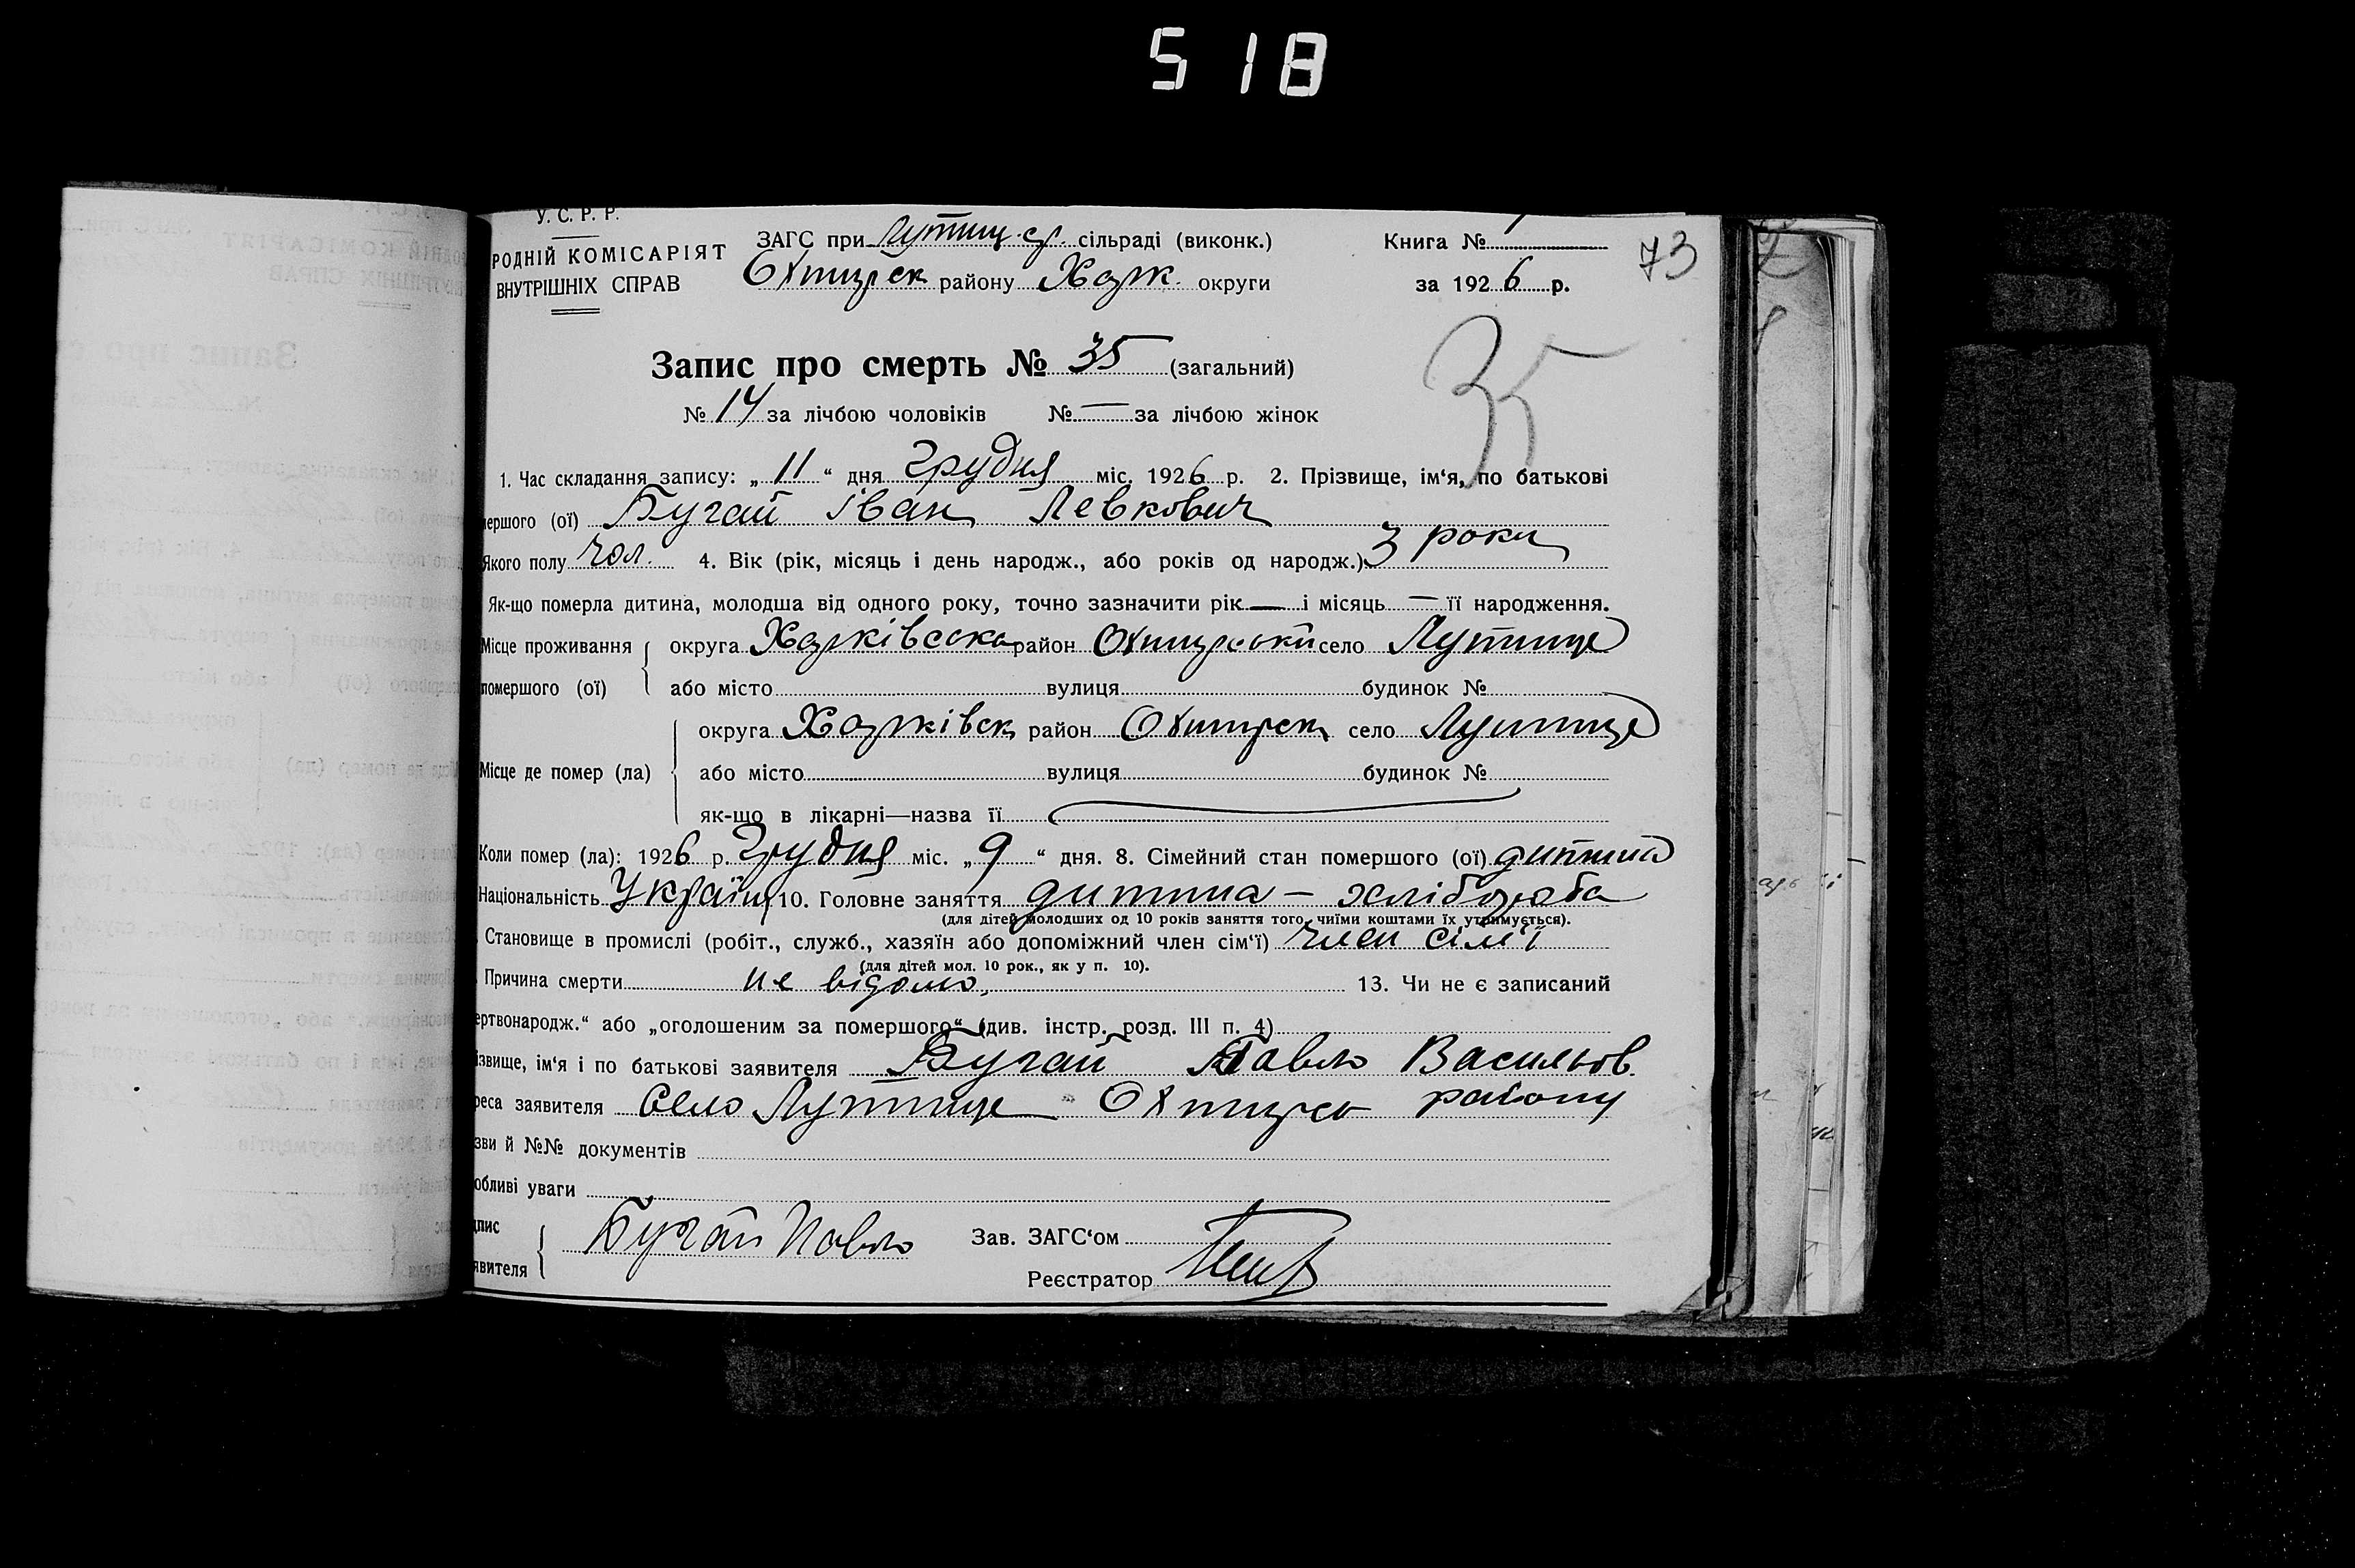 518
У. С. Р. Р.
РОДНІЙ КОМІСАРІЯТ
ВНУТРІШНІХ СПРАВ
ЗАГС при Лутищ. с/р. сільраді (виконк.)
Охтирск району Харк. округи
Книга №
за 1926 р.
73
Запис про смерть № 35 (загальний)
35
№ 14 за лічбою чоловіків № — за лічбою жінок
1. Час складання запису: „ 11 “ дня Грудня міс. 1926 р. 2. Прізвище, ім‘я, по батькові
мершого (ої) Бугай Іван Левкович
Якого полу чол. 4. Вік (рік, місяць і день народж., або років од народж.) 3 роки
Як-що померла дитина, молодша від одного року, точно зазначити рік — і місяць — її народження.
Місце проживання округа Харківська район Охтирський село Лутище
помершого (ої) або місто вулиця будинок №
округа Харківск район Охтирск село Лутище
Місце де помер (ла) або місто вулиця будинок №
як-що в лікарні—назва її
Коли помер (ла): 1926 р. Грудня міс. „ 9 “ дня. 8. Сімейний стан помершого (ої) дитина
Національність Україн 10. Головне заняття дитина — хлібороба
(для дітей молодших од 10 років заняття того, чиїми коштами їх утримується).
Становище в промислі (робіт., служб., хазяїн або допоміжний член сім‘ї) член сім'ї
(для дітей мол. 10 рок., як у п. 10).
Причина смерти не відомо, 13. Чи не є записаний
ертвонародж.“ або „оголошеним за помершого“ (див. інстр. розд. III п. 4)
ізвище, ім‘я і по батькові заявителя Бугай Павло Васильов.
реса заявителя Село Лутище Охтирсь району
зви й №№ документів
обливі уваги
дпис
явителя Бугай Павло
Зав. ЗАГС‘ом
Реєстратор